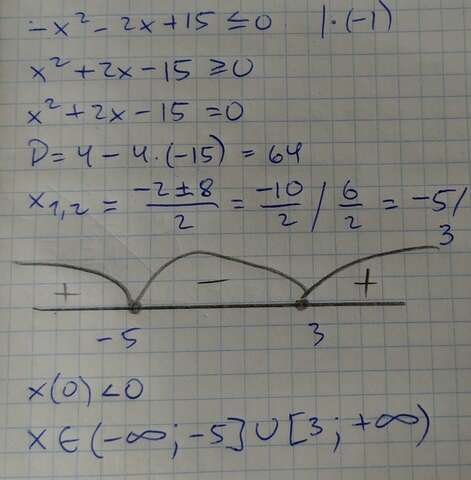 -x² - 2x + 15 ≤ 0 | · (-1)
x² + 2x - 15 ≥ 0
x² + 2x - 15 = 0
D = 4 - 4 · (-15) = 64
x₁,₂ = (-2 ± 8)/2 = -10/2 / 6/2 = -5/
3
+ - +
-5 3
x(0) < 0
x ∈ (-∞; -5] ∪ [3; +∞)